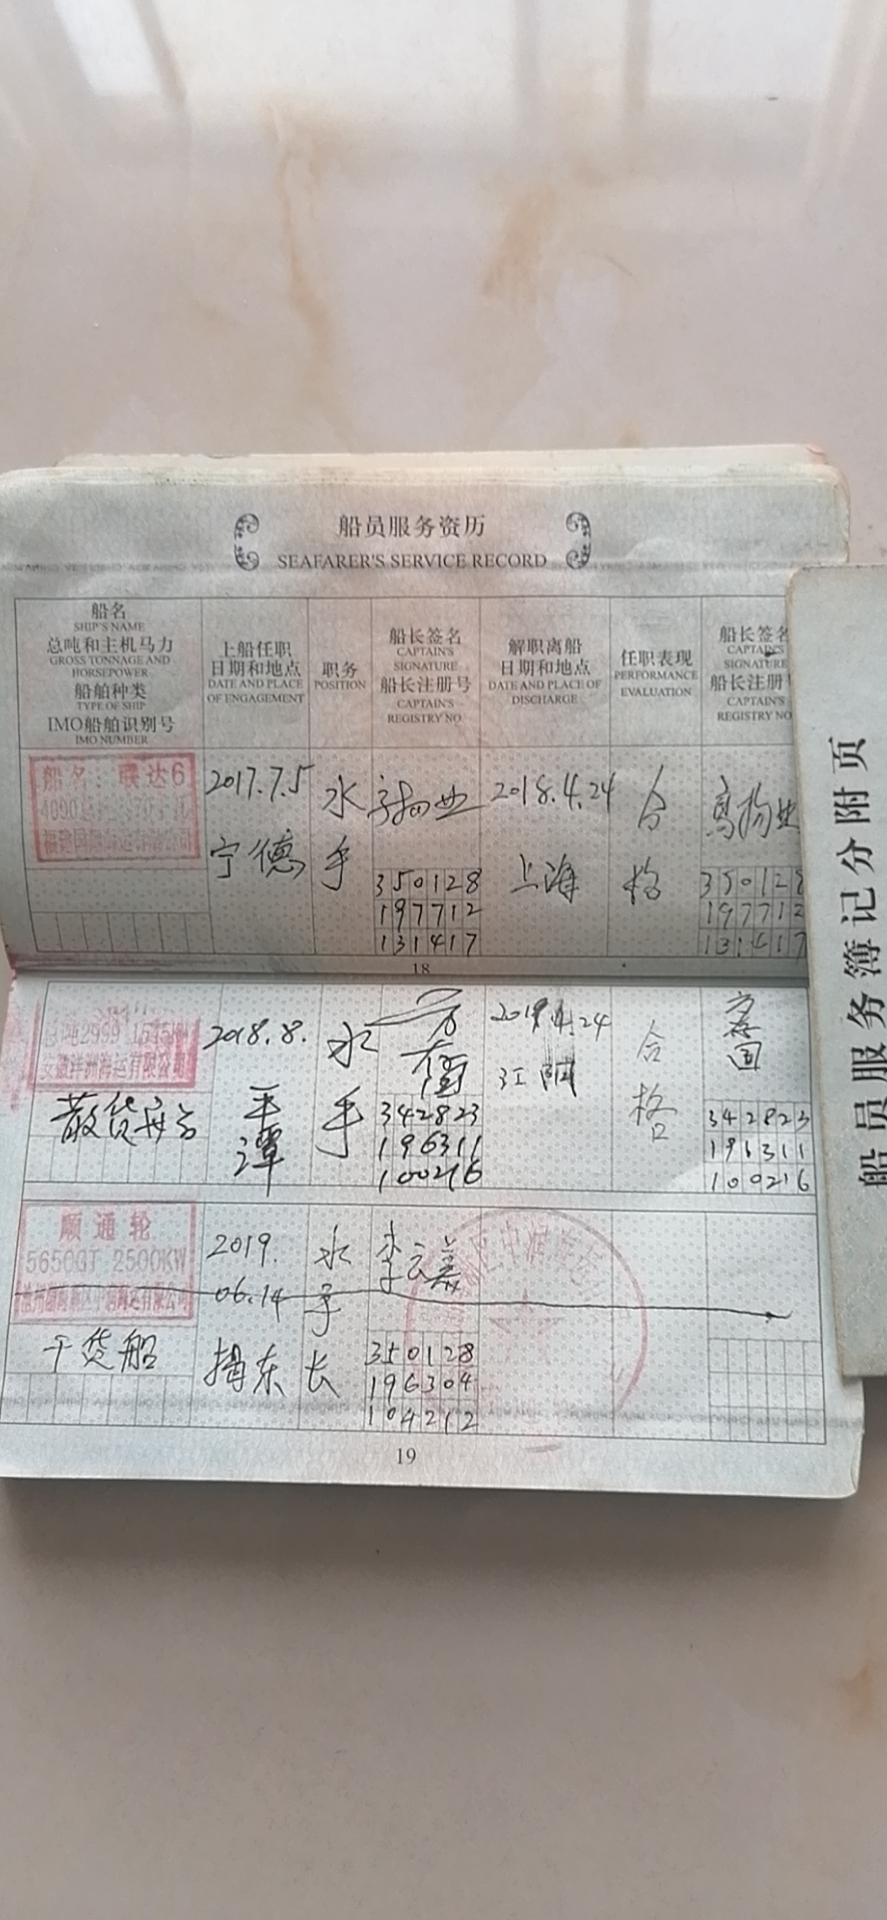 船员服务资历
SEAFARER'S SERVICE RECORD
船名
SHIP'S NAME
总吨和主机马力
GROSS TONNAGE AND
HORSEPOWER
船舶种类
TYPE OF SHIP
IMO船舶识别号
IMO NUMBER
上船任职
日期和地点
DATE AND PLACE
OF ENGAGEMENT
职务
POSITION
船长签名
CAPTAIN'S
SIGNATURE
船长注册号
CAPTAIN'S
REGISTRY NO
解职离船
日期和地点
DATE AND PLACE OF
DISCHARGE
任职表现
PERFORMANCE
EVALUATION
船长签名
CAPTAIN'S
SIGNATURE
船长注册
CAPTAIN'S
REGISTRY NO
船名：联达6
2017.7.5
宁德
水
手
350128
197712
131417
2018.4.24
上海
合
格
350128
197712
131417
18
总吨2999
海运有限公司
散货
2018.8.
平
潭
水
手
342823
196311
100216
2019.4.24
江阴
合
格
342823
196311
100216
顺通轮
5650GT 2500KW
干货船
2019.
06.14
揭东
水
手
长
李云
350128
196304
104212
19
船员服务簿记分附页